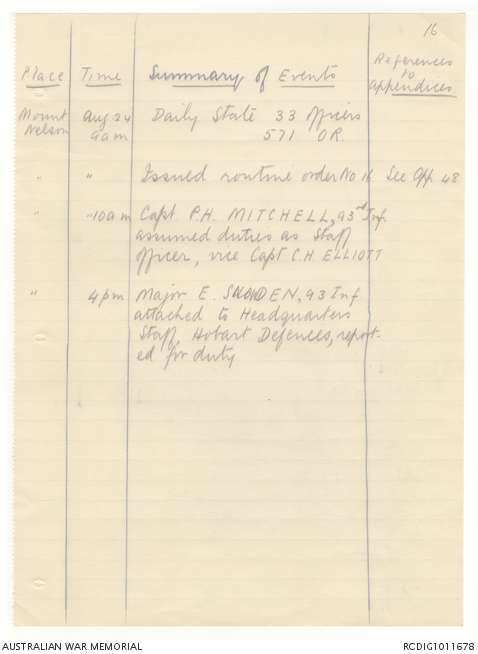 16
Place Time Summary of Events References to Appendices
Mount Nelson Aug 24 9am Daily State 33 Officers
571 O.R.
" " Issued routine order No 16 See App. 48
" " 10am Capt P.H. MITCHELL, 93rd Inf.
assumed duties as Staff
Officer, vice Capt C.H. ELLIOTT
" 4pm Major E. 93 Inf
attached to Headquarters
Staff, Hobart Defences, report-
ed for duty
AUSTRALIAN WAR MEMORIAL
RCDIG1011678